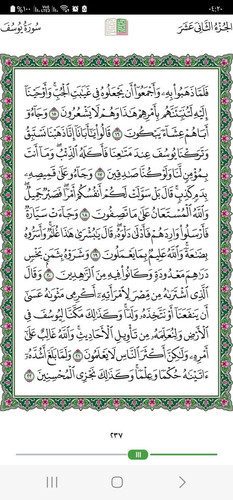 ٪١٠٠ ٠٤:٢٠
الجزء الثاني عشر سورة يوسف
فَلَمَّا ذَهَبُوا۟ بِهِۦ وَأَجْمَعُوٓا۟ أَن يَجْعَلُوهُ فِى غَيَٰبَتِ ٱلْجُبِّ ۚ وَأَوْحَيْنَآ
إِلَيْهِ لَتُنَبِّئَنَّهُم بِأَمْرِهِمْ هَٰذَا وَهُمْ لَا يَشْعُرُونَ ١٥ وَجَآءُوٓ
أَبَاهُمْ عِشَآءً يَبْكُونَ ١٦ قَالُوا۟ يَٰٓأَبَانَآ إِنَّا ذَهَبْنَا نَسْتَبِقُ
وَتَرَكْنَا يُوسُفَ عِندَ مَتَٰعِنَا فَأَكَلَهُ ٱلذِّئْبُ ۖ وَمَآ أَنتَ
بِمُؤْمِنٍ لَّنَا وَلَوْ كُنَّا صَٰدِقِينَ ١٧ وَجَآءُو عَلَىٰ قَمِيصِهِۦ
بِدَمٍ كَذِبٍ ۚ قَالَ بَلْ سَوَّلَتْ لَكُمْ أَنفُسُكُمْ أَمْرًا ۖ فَصَبْرٌ جَمِيلٌ ۖ
وَٱللَّهُ ٱلْمُسْتَعَانُ عَلَىٰ مَا تَصِفُونَ ١٨ وَجَآءَتْ سَيَّارَةٌ
فَأَرْسَلُوا۟ وَارِدَهُمْ فَأَدْلَىٰ دَلْوَهُۥ ۖ قَالَ يَٰبُشْرَىٰ هَٰذَا غُلَٰمٌ ۚ وَأَسَرُّوهُ
بِضَٰعَةً ۚ وَٱللَّهُ عَلِيمٌۢ بِمَا يَعْمَلُونَ ١٩ وَشَرَوْهُ بِثَمَنٍۭ بَخْسٍ
دَرَٰهِمَ مَعْدُودَةٍ وَكَانُوا۟ فِيهِ مِنَ ٱلزَّٰهِدِينَ ٢٠ وَقَالَ
ٱلَّذِى ٱشْتَرَىٰهُ مِن مِّصْرَ لِٱمْرَأَتِهِۦٓ أَكْرِمِى مَثْوَىٰهُ عَسَىٰٓ
أَن يَنفَعَنَآ أَوْ نَتَّخِذَهُۥ وَلَدًا ۚ وَكَذَٰلِكَ مَكَّنَّا لِيُوسُفَ فِى
ٱلْأَرْضِ وَلِنُعَلِّمَهُۥ مِن تَأْوِيلِ ٱلْأَحَادِيثِ ۚ وَٱللَّهُ غَالِبٌ عَلَىٰٓ
أَمْرِهِۦ وَلَٰكِنَّ أَكْثَرَ ٱلنَّاسِ لَا يَعْلَمُونَ ٢١ وَلَمَّا بَلَغَ أَشُدَّهُۥٓ
ءَاتَيْنَٰهُ حُكْمًا وَعِلْمًا ۚ وَكَذَٰلِكَ نَجْزِى ٱلْمُحْسِنِينَ ٢٢
٢٣٧